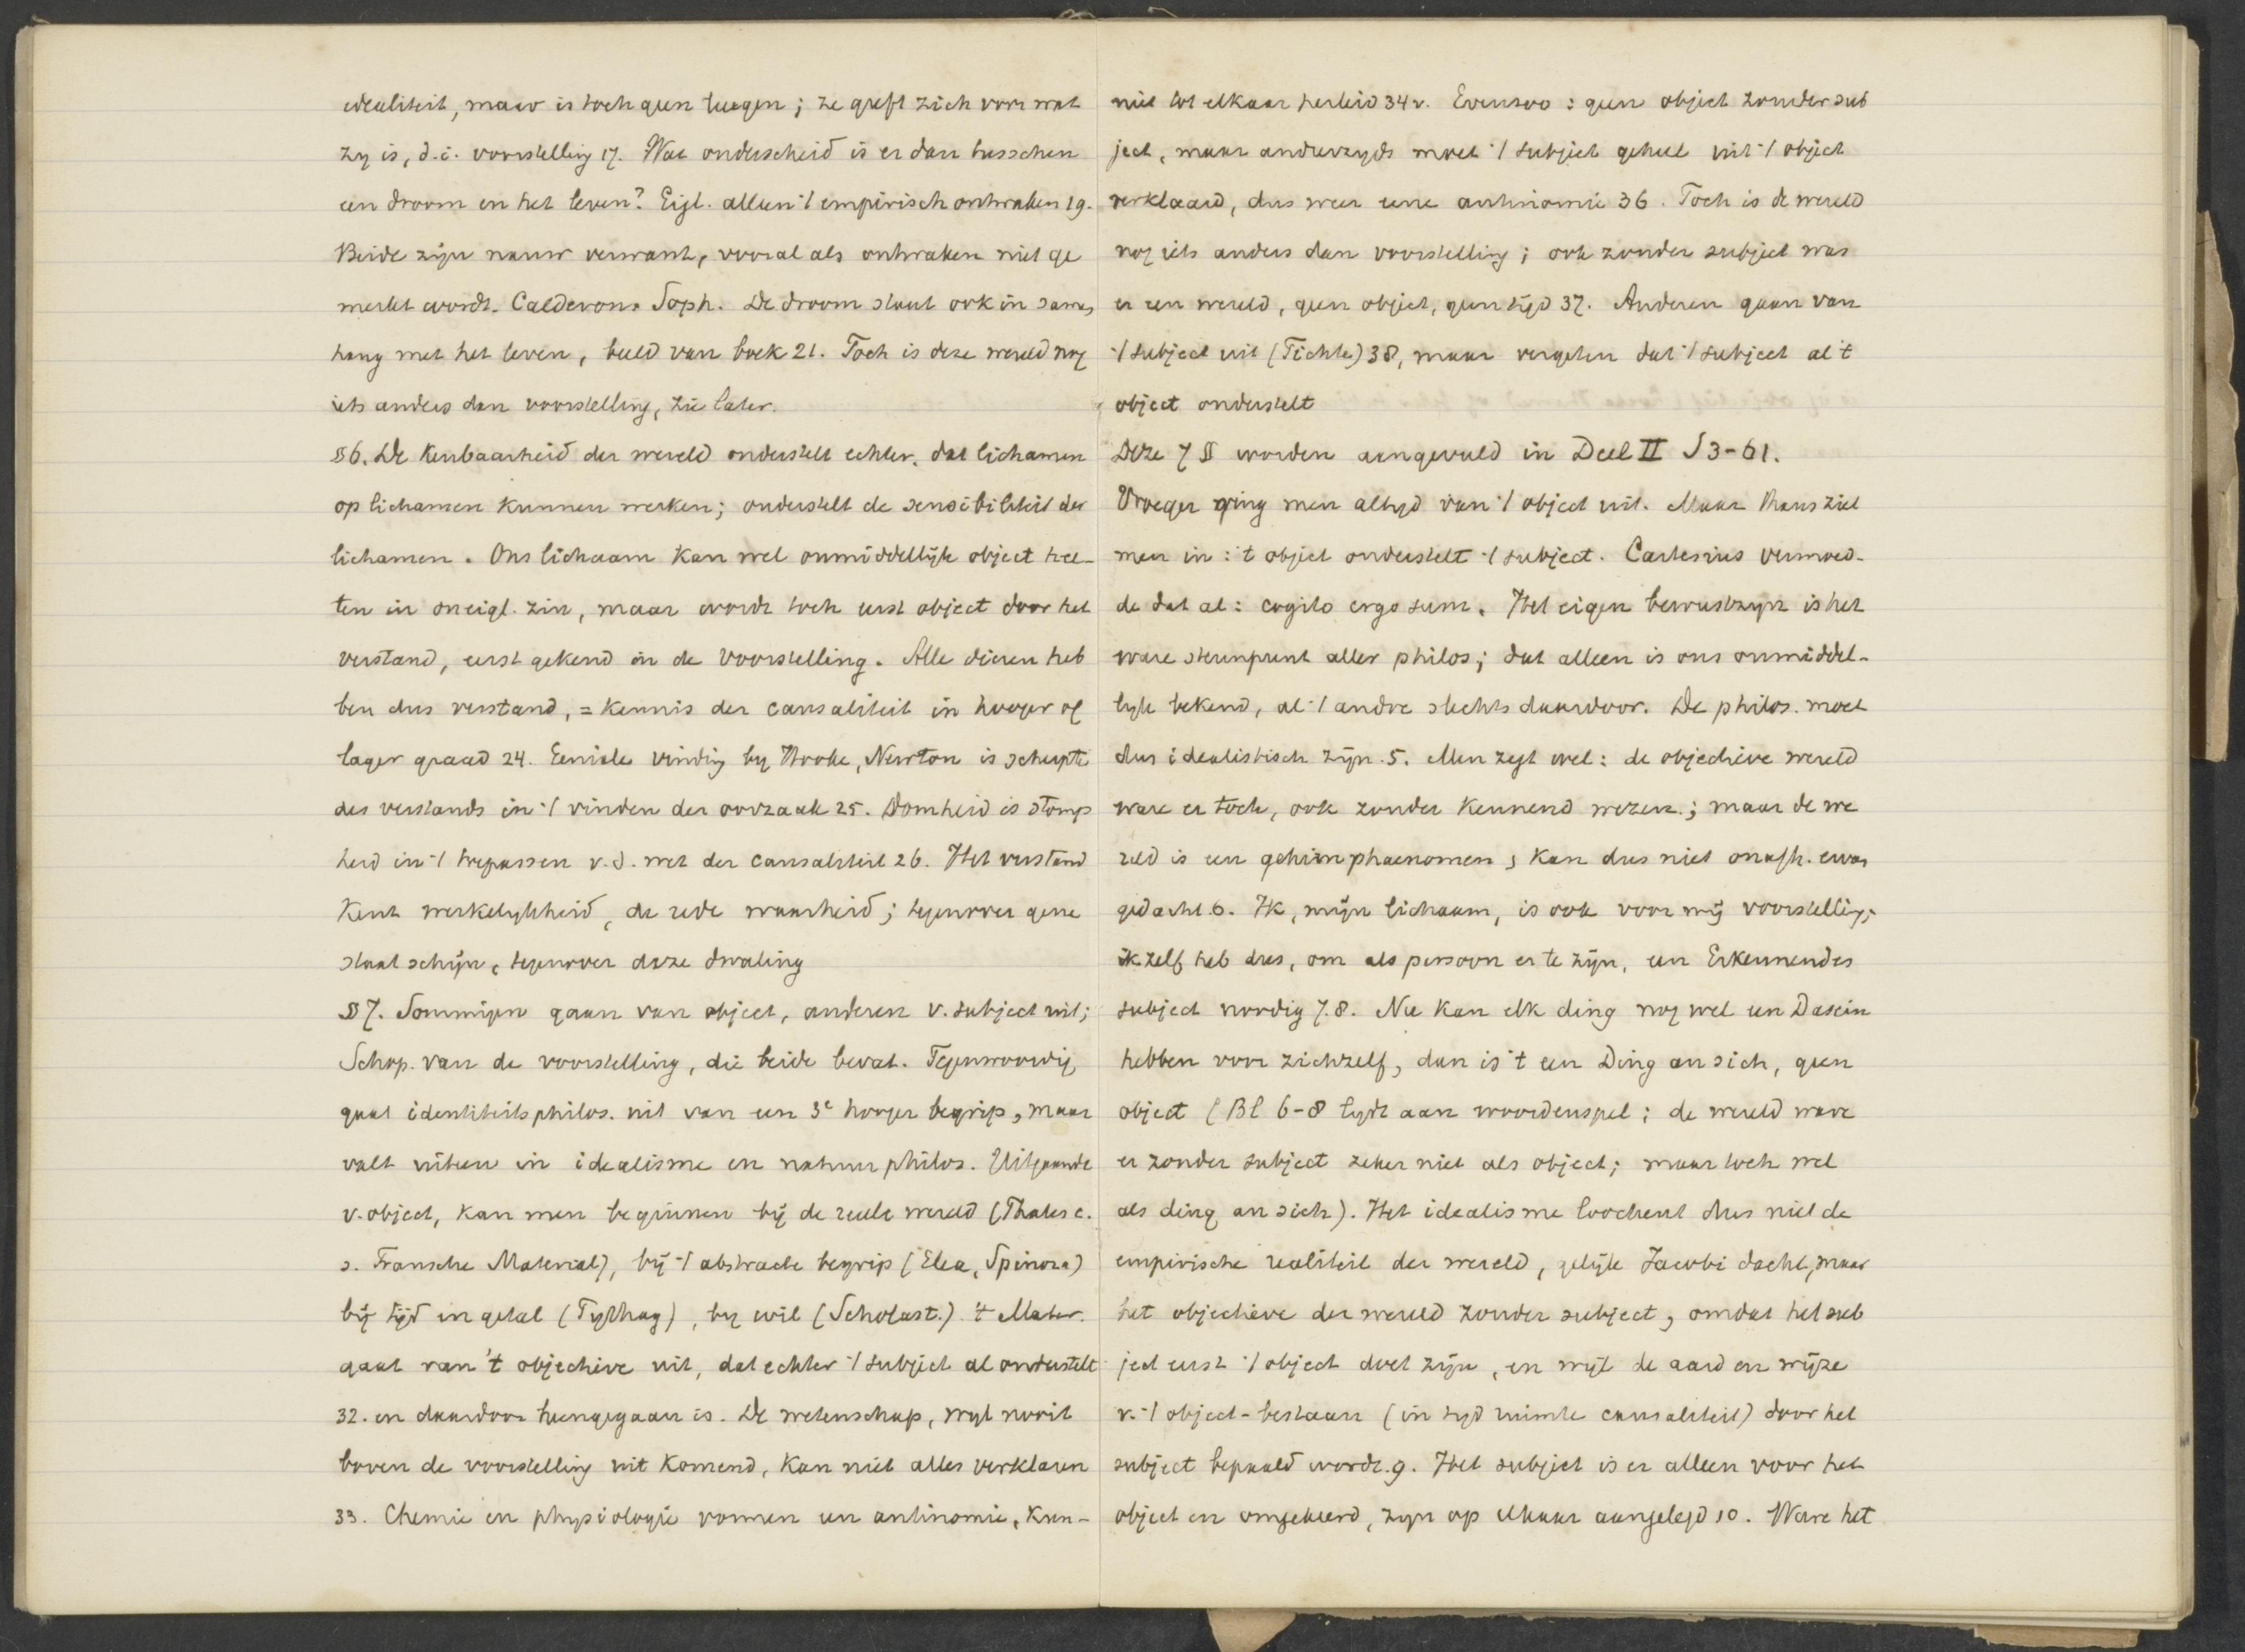 idealiteit, maar is toch geen leugen; ze geeft zich voor wat
zy is, d.i. voorstelling 17. Wat onderscheid is er dan tusschen
een droom en het leven? Eigl. alleen 't empirisch ontwaken 19.
Beide zijn nauw verwant, vooral als ontwaken niet ge
merkt wordt. Calderon. Soph. De droom staat ook in samen
hang met het leven, beeld van boek 21. Toch is deze wereld nog
iets anders dan voorstelling, zie later.
§6. De kenbaarheid der wereld onderstelt echter, dat lichamen
op lichamen kunnen werken; onderstelt de sensibiliteit der
lichamen. Ons lichaam kan wel onmiddellijk object hee-
ten in oneigl. zin, maar wordt toch eerst object door het
verstand, eerst gekend in de voorstelling. Alle dieren heb
ben dus verstand, = kennis der causaliteit in hooger of
lager graad 24. Geniale vinding by Hooke, Newton is scherpte
des verstands in 't vinden der oorzaak 25. Domheid is stomp
heid in 't toepassen v.d. wet der causaliteit 26. Het verstand
kent werkelykheid, de rede waarheid; tegenover gene
staat schijn, tegenover deze dwaling
§7. Sommigen gaan van object, anderen v. subject uit;
Schop. van de voorstelling, die beide bevat. Tegenwoordig
gaat identiteitsphilos. uit van een 3e hooger begrip, maar
valt uiteen in idealisme en natuurphilos. Uitgaande
v. object, kan men beginnen bij de reële wereld (Thales c.
s. Fransche Material), bij 't abstracte begrip (Elea, Spinoza)
bij tijd en getal (Pythag), by wil (Scholast.) 't Mater.
gaat van 't objectieve uit, dat echter 't subject al onderstelt
32. en daardoor heengegaan is. De wetenschap, wyl nooit
boven de voorstelling uit komend, kan niet alles verklaren
33. Chemie en physiologie vormen een antinomie, kun-
niet tot elkaar herleid 34 v. Evenzoo: geen object zonder sub
ject, maar anderzyds moet 't subject geheel uit 't object
verklaard, dus weer eene antinomie 36. Toch is de wereld
nog iets anders dan voorstelling; ook zonder subject was
er een wereld, geen object, geen tijd 37. Anderen gaan van
't subject uit (Fichte) 38, maar vergeten dat 't subject al 't
object onderstelt
Deze 7 § worden aangevuld in Deel II S 3-61.
Vroeger ging men altyd van 't object uit. Maar thans ziet
men in: 't object onderstelt 't subject. Cartesius vermoed-
de dat al: cogito ergo sum. Het eigen bewustzyn is het
ware steunpunt aller philos; dat alleen is ons onmiddel-
lyk bekend, al 't andre slechts daardoor. De philos. moet
dus idealistisch zijn. 5. Men zegt wel: de objectieve wereld
ware er toch, ook zonder kennend wezen.; maar de we
reld is een gehirnphaenomen, kan dus niet onafh. ervan
gedacht 6. Ik, mijn lichaam, is ook voor mij voorstelling;
ik zelf heb dus, om als persoon er te zijn, een Erkennendes
subject noodig 7.8. Nu kan elk ding nog wel een Dasein
hebben voor zichzelf, dan is 't een Ding an sich, geen
object (Bl 6-8 lydt aan woordenspel; de wereld ware
er zonder subject zeker niet als object; maar toch wel
als ding an sich). Het idealisme loochent dus niet de
empirische realiteit der wereld, gelijk Jacobi dacht, maar
het objectieve der wereld zonder subject, omdat het sub
ject eerst 't object doet zijn, en wijl de aard en wijze
v. 't object-bestaan (in tyd ruimte causaliteit) door het
subject bepaald wordt. 9. Het subject is er alleen voor het
object en omgekeerd, zyn op elkaar aangelegd 10. Ware het